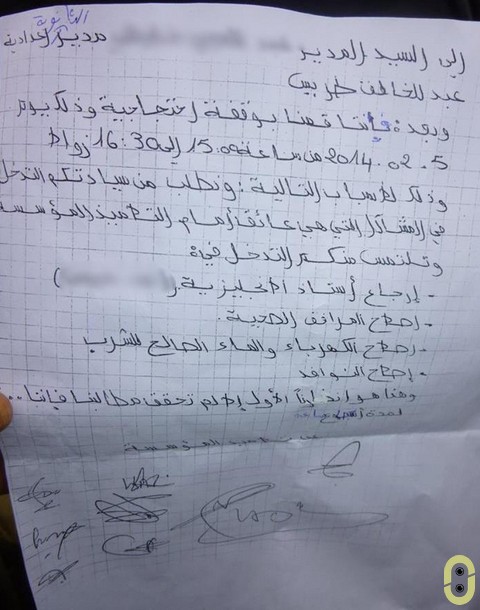 الثانوية
إلى السيد المدير
مدير إعدادية
عبد الخالق طريس
وبعد: فإننا قمنا بوقفة إحتجاجية وذلك يوم
5 .02 .2014 من ساعة 15:00 إلى 16:30 زوالا
وذلك لأسباب التالية: ونطلب من سيادتكم التدخل
في المشاكل التي هي عائق أمام التلاميذ المؤسسة
ونلتمس منكم التدخل في:
- إرجاع أستاذ الإنجليزية ( )
- إصلاح المرافق الصحية.
- إصلاح الكهرباء والماء الصالح للشرب
- إصلاح النوافد
وهذا هو إنذارنا الأول إذا لم تحقق مطالبنا فإننا...
لمدة
المؤسسة